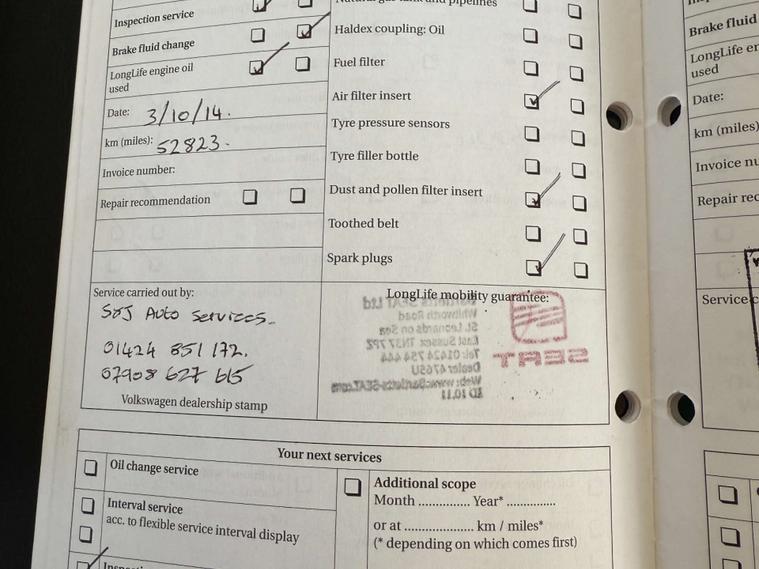 Natural gas tank and pipelines
Inspection service
Brake fluid change
Haldex coupling: Oil
LongLife engine oil
used
Fuel filter
Date: 3/10/14.
Air filter insert
km (miles): 52823.
Tyre pressure sensors
Invoice number:
Tyre filler bottle
Repair recommendation
Dust and pollen filter insert
Toothed belt
Spark plugs
Service carried out by:
S&J Auto Services.
01424 851 172.
07908 627 615
Volkswagen dealership stamp
LongLife mobility guarantee:
SEAT Ltd
Road
St. Leonards on Sea
East Sussex TN37 7PZ
Tel: 01424 754 444
SEAT
Your next services
Oil change service
Interval service
acc. to flexible service interval display
Additional scope
Month .............. Year* ...............
or at ..................... km / miles*
(* depending on which comes first)
Brake fluid
LongLife en
used
Date:
km (miles)
Invoice nu
Repair rec
Service c